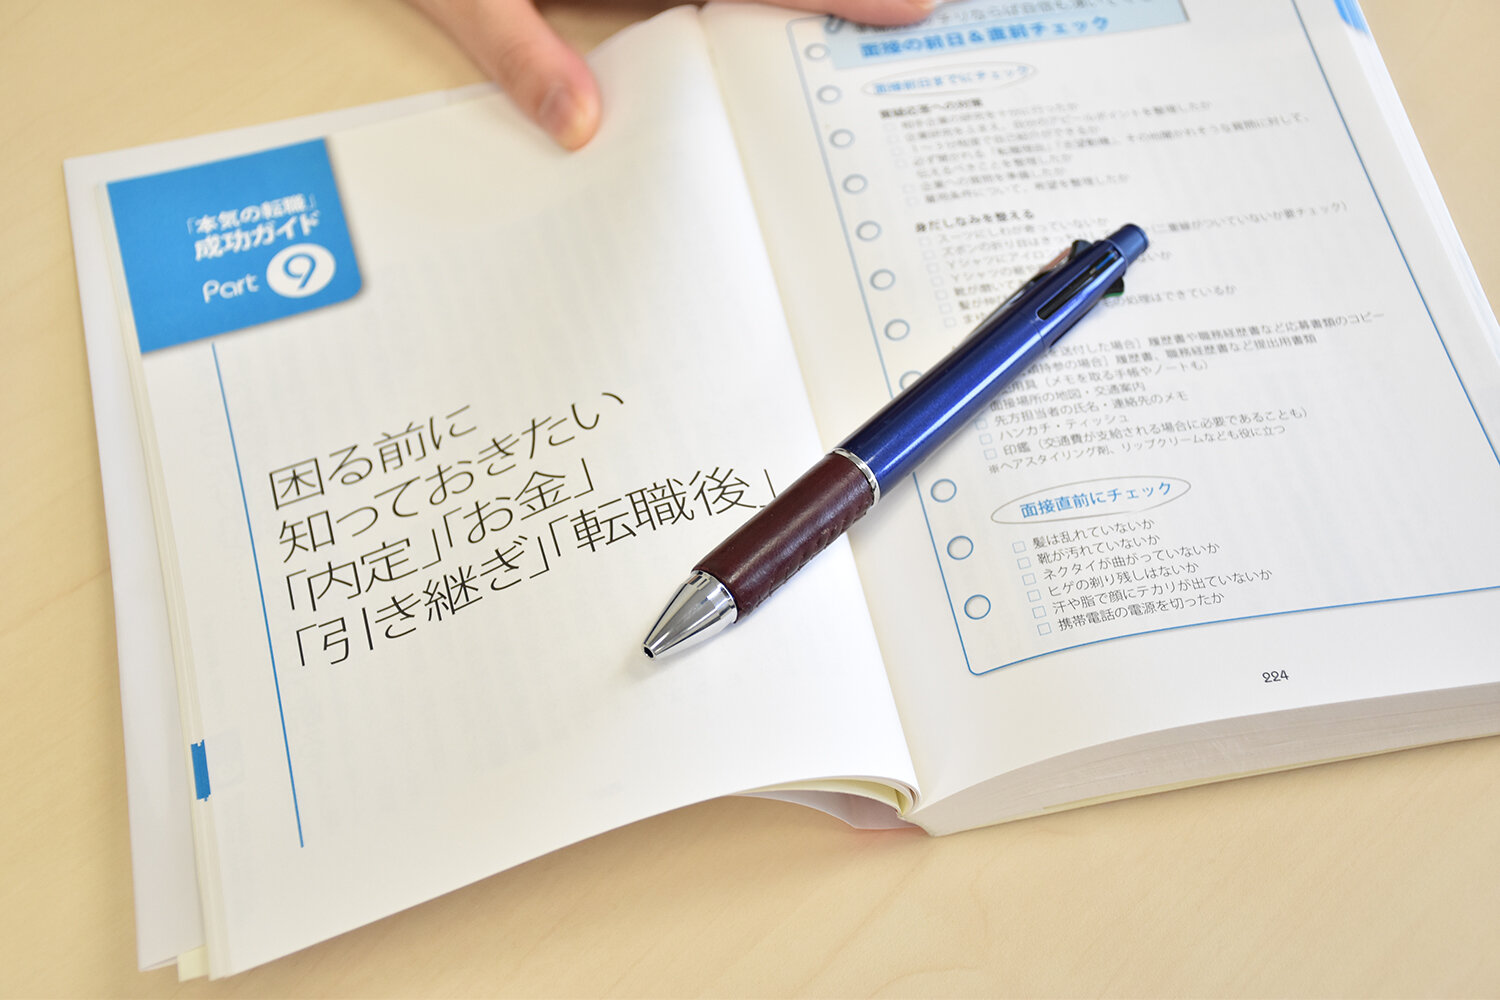 「本気の転職」
成功ガイド
Part 9
困る前に
知っておきたい
「内定」「お金」
「引き継ぎ」「転職後」
面接の前日&直前チェック
面接前日までにチェック
質疑応答への対策
相手企業の研究をすでに行ったか
企業研究をふまえ、自分のアピールポイントを整理したか
1〜2分程度で自己紹介ができるか
必ず聞かれる「転職理由」「志望動機」、その他聞かれそうな質問に対して、
伝えるべきことを整理したか
企業への質問を準備したか
雇用条件について、希望を整理したか
身だしなみを整える
スーツにしわが寄っていないか
ズボンの折り目はきっ (二重線がついていないか要チェック)
Yシャツにアイロン ないか
Yシャツの襟や
靴が磨いて
髪が伸び
の処理はできているか
を送付した場合] 履歴書や職務経歴書など応募書類のコピー
持参の場合] 履歴書、職務経歴書など提出用書類
用具 (メモを取る手帳やノートも)
面接場所の地図・交通案内
先方担当者の氏名・連絡先のメモ
ハンカチ・ティッシュ
印鑑 (交通費が支給される場合に必要であることも)
※ヘアスタイリング剤、リップクリームなども役に立つ
面接直前にチェック
髪は乱れていないか
靴が汚れていないか
ネクタイが曲がっていないか
ヒゲの剃り残しはないか
汗や脂で顔にテカリが出ていないか
携帯電話の電源を切ったか
224